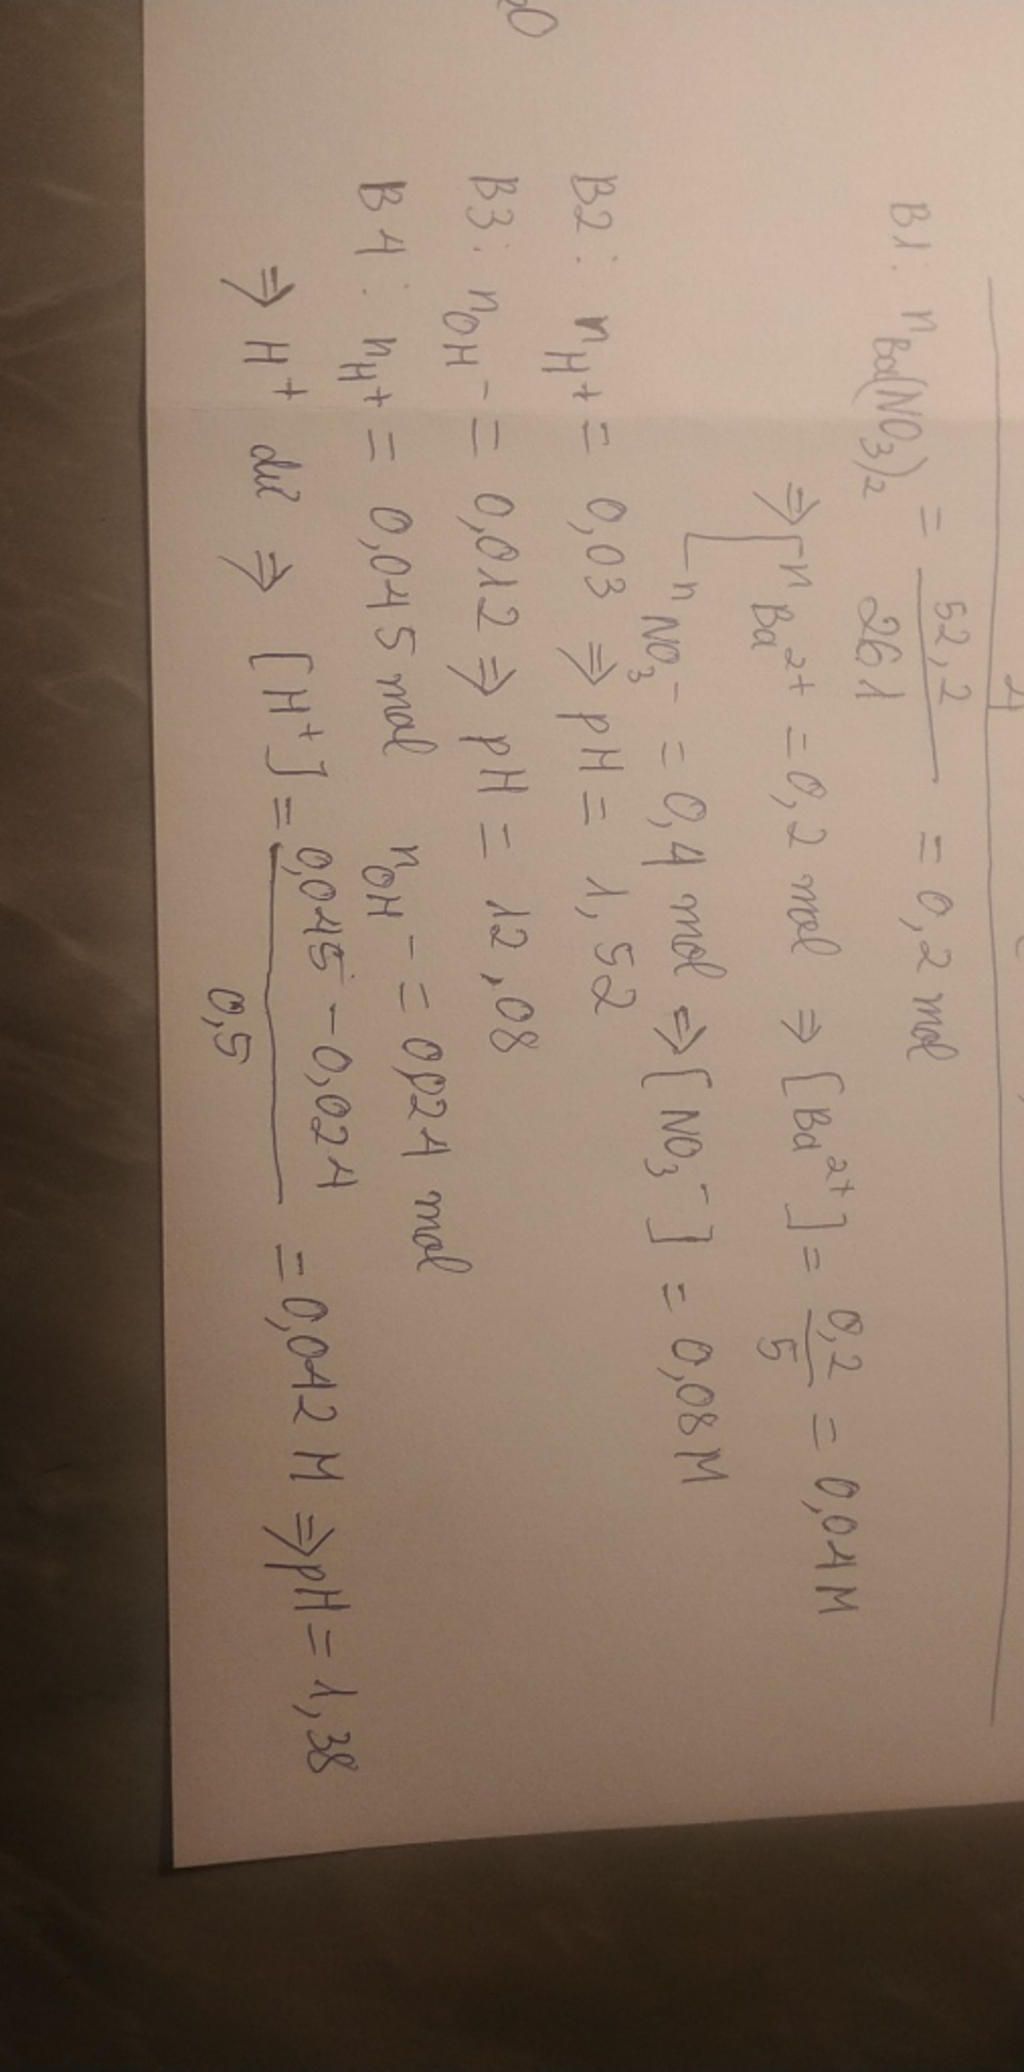 B1: n Ba(NO3)2 = 52,2 / 261 = 0,2 mol
⇒ [ n Ba2+ = 0,2 mol ⇒ [Ba2+] = 0,2 / 5 = 0,04 M
n NO3- = 0,4 mol ⇒ [NO3-] = 0,08 M
B2: nH+ = 0,03 ⇒ pH = 1,52
B3: nOH- = 0,012 ⇒ pH = 12,08
B4: nH+ = 0,045 mol nOH- = 0,024 mol
⇒ H+ dư ⇒ [H+] = 0,045 - 0,024 / 0,5 = 0,042 M ⇒ pH = 1,38